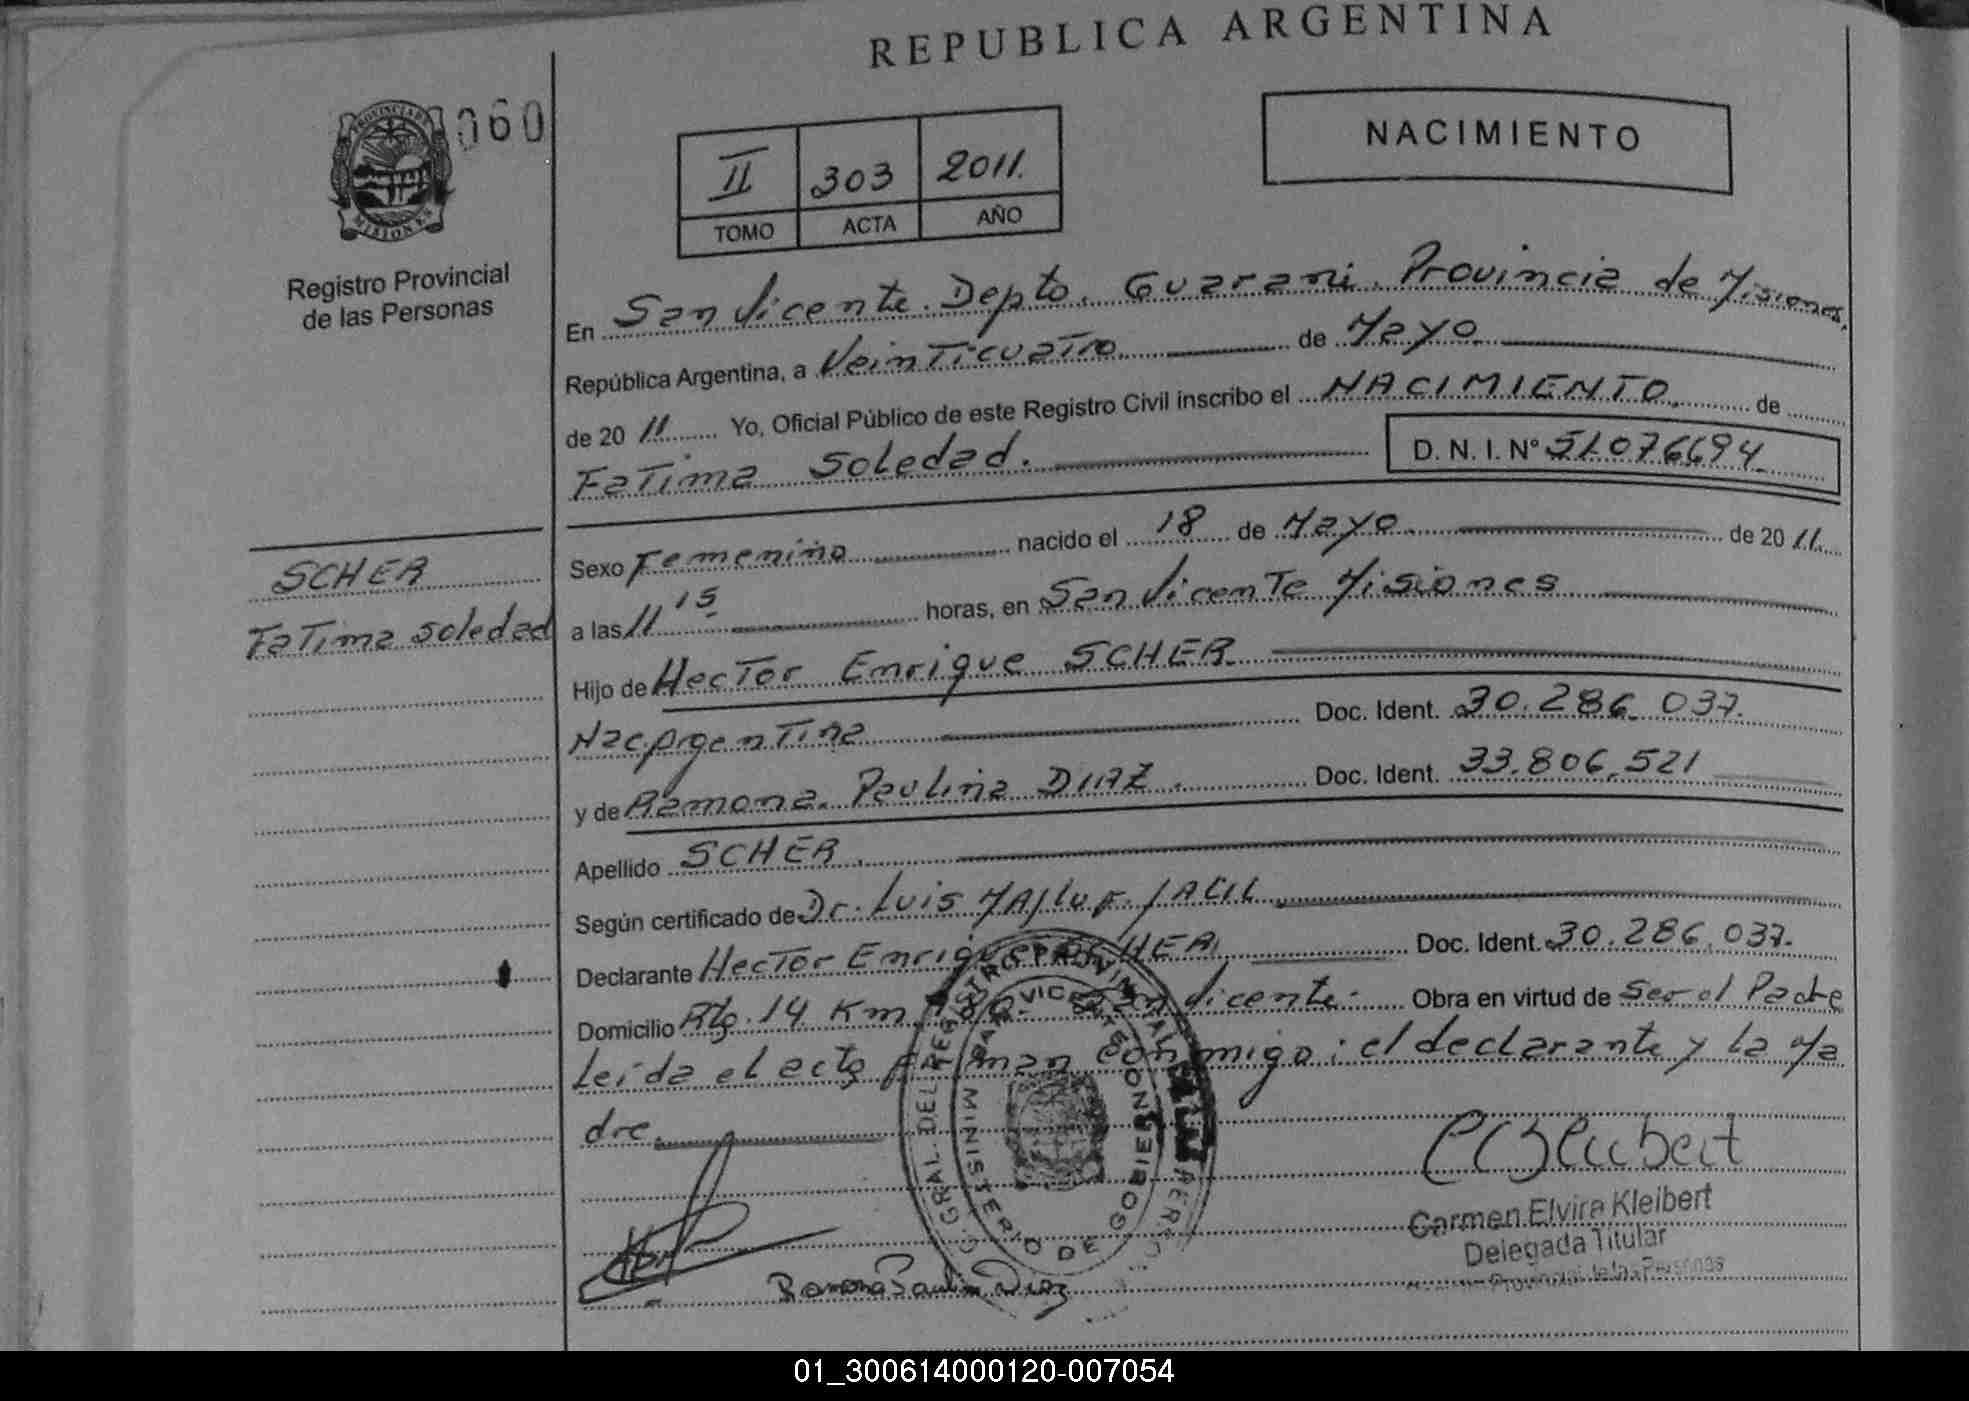 REPUBLICA ARGENTINA
060
PROVINCIA DE MISIONES
Registro Provincial
de las Personas
II 303 2011.
TOMO ACTA AÑO
NACIMIENTO
En San Vicente. Depto. Guarani. Provincia de Misiones.
República Argentina, a Veinticuatro de Mayo
de 20 11 Yo, Oficial Público de este Registro Civil inscribo el NACIMIENTO. de
Fatima Soledad. D. N. I. N° 51076694
SCHER
Fatima Soledad
Sexo Femenino nacido el 18 de Mayo de 20 11.
a las 11 15 horas, en San Vicente Misiones
Hijo de Hector Enrique SCHER
Nac Argentina Doc. Ident. 30.286.037.
y de Ramona Paulina DIAZ. Doc. Ident. 33.806.521
Apellido SCHER.
Según certificado de Dr. Luis
Declarante Hector Enrique SCHER, Doc. Ident. 30.286.037.
Domicilio Rta. 14 Km San Vicente. Obra en virtud de Ser el Padre
Leida el acta firman conmigo: el declarante y la Ma
dre
MINISTERIO DE GOBIERNO
Carmen Elvira Kleibert
Delegada Titular
Provincial de las Personas
Ramona Paulina Diaz
01_300614000120-007054